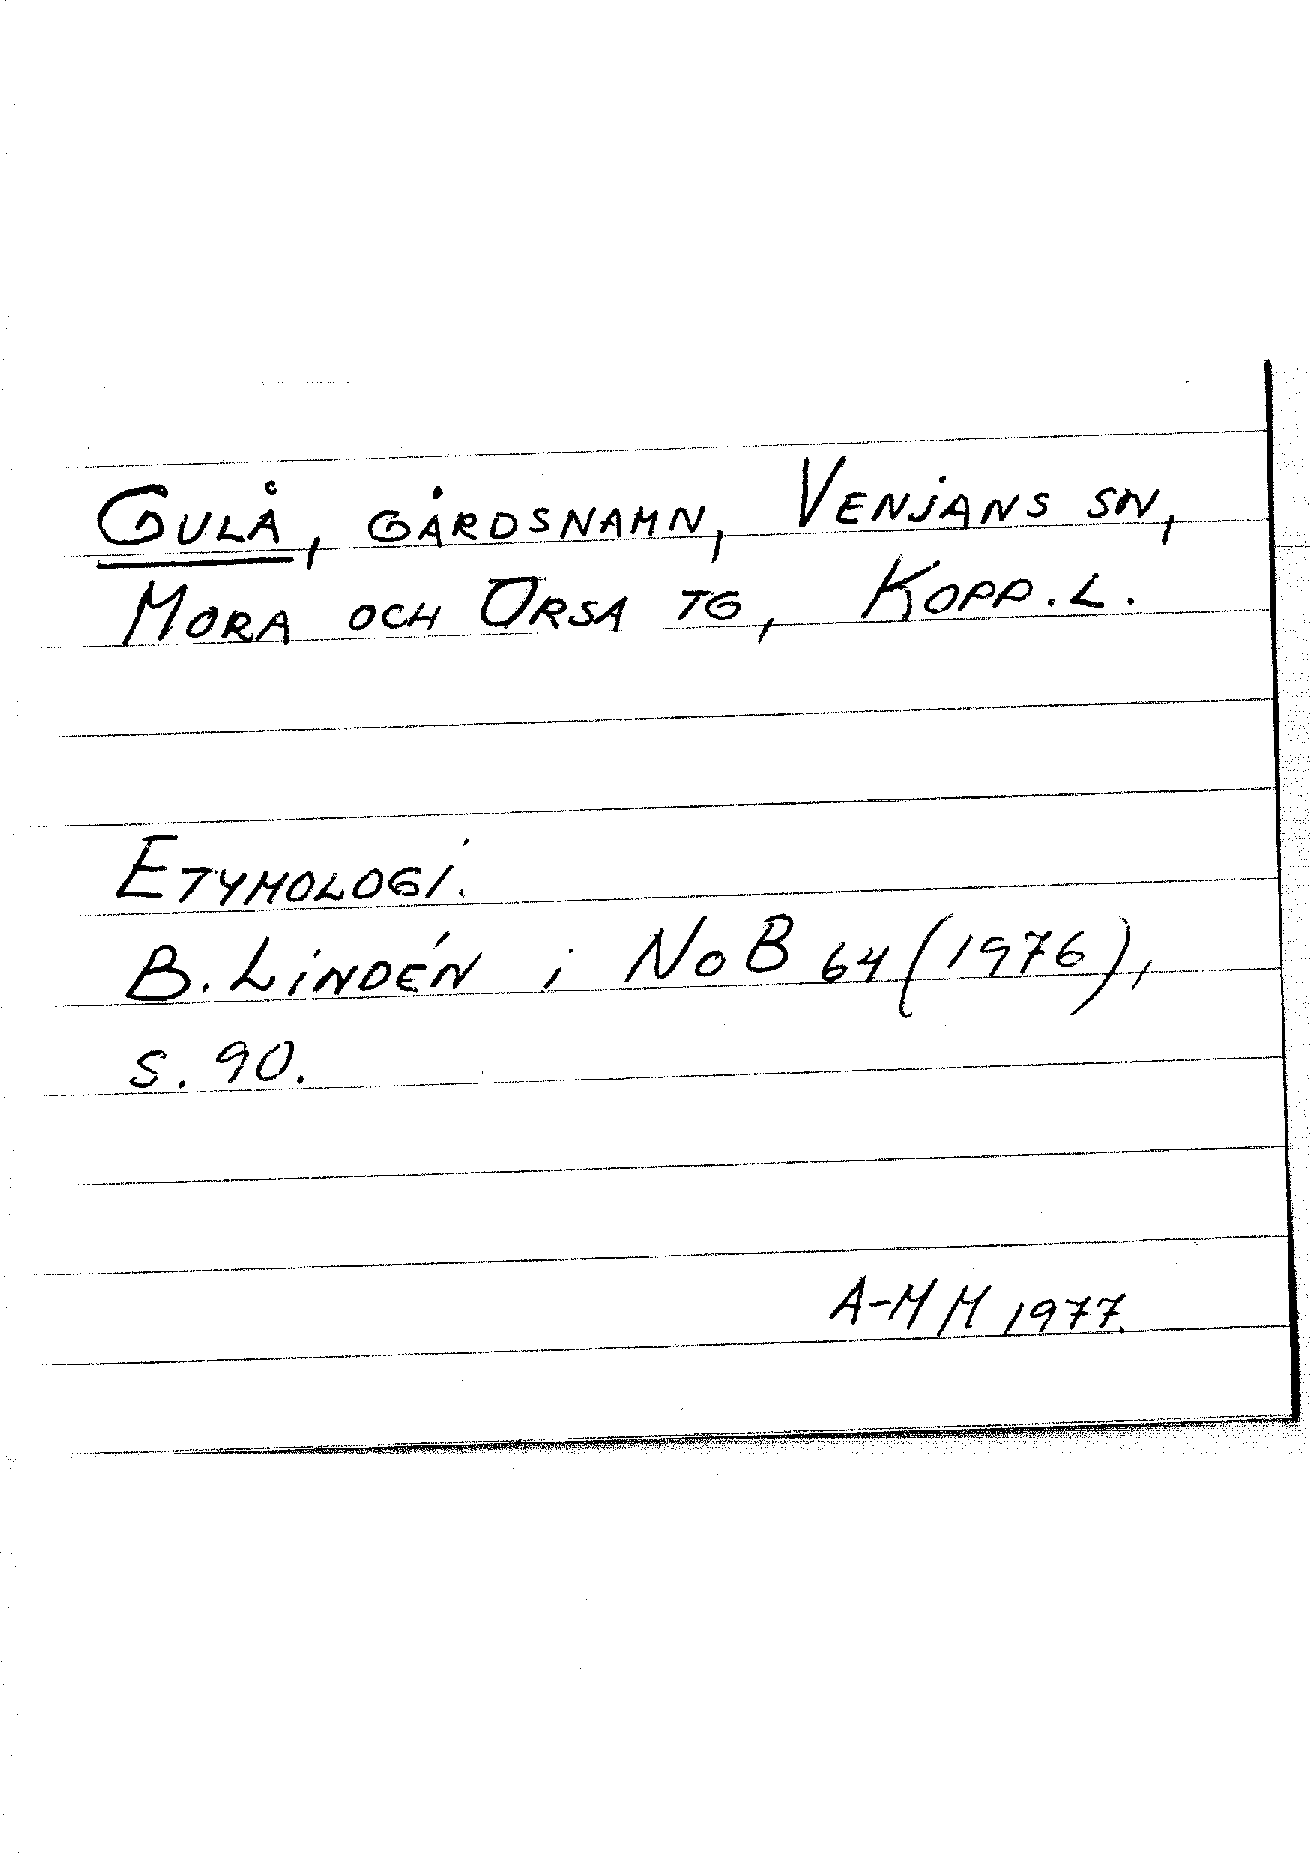 GULÅ, GÅRDSNAMN, VENJANS SN,
MORA OCH ORSA TG, KOPP.L.
ETYMOLOGI.
B. LINDÉN i NoB 64 (1976),
S. 90.
A-MH 1977.